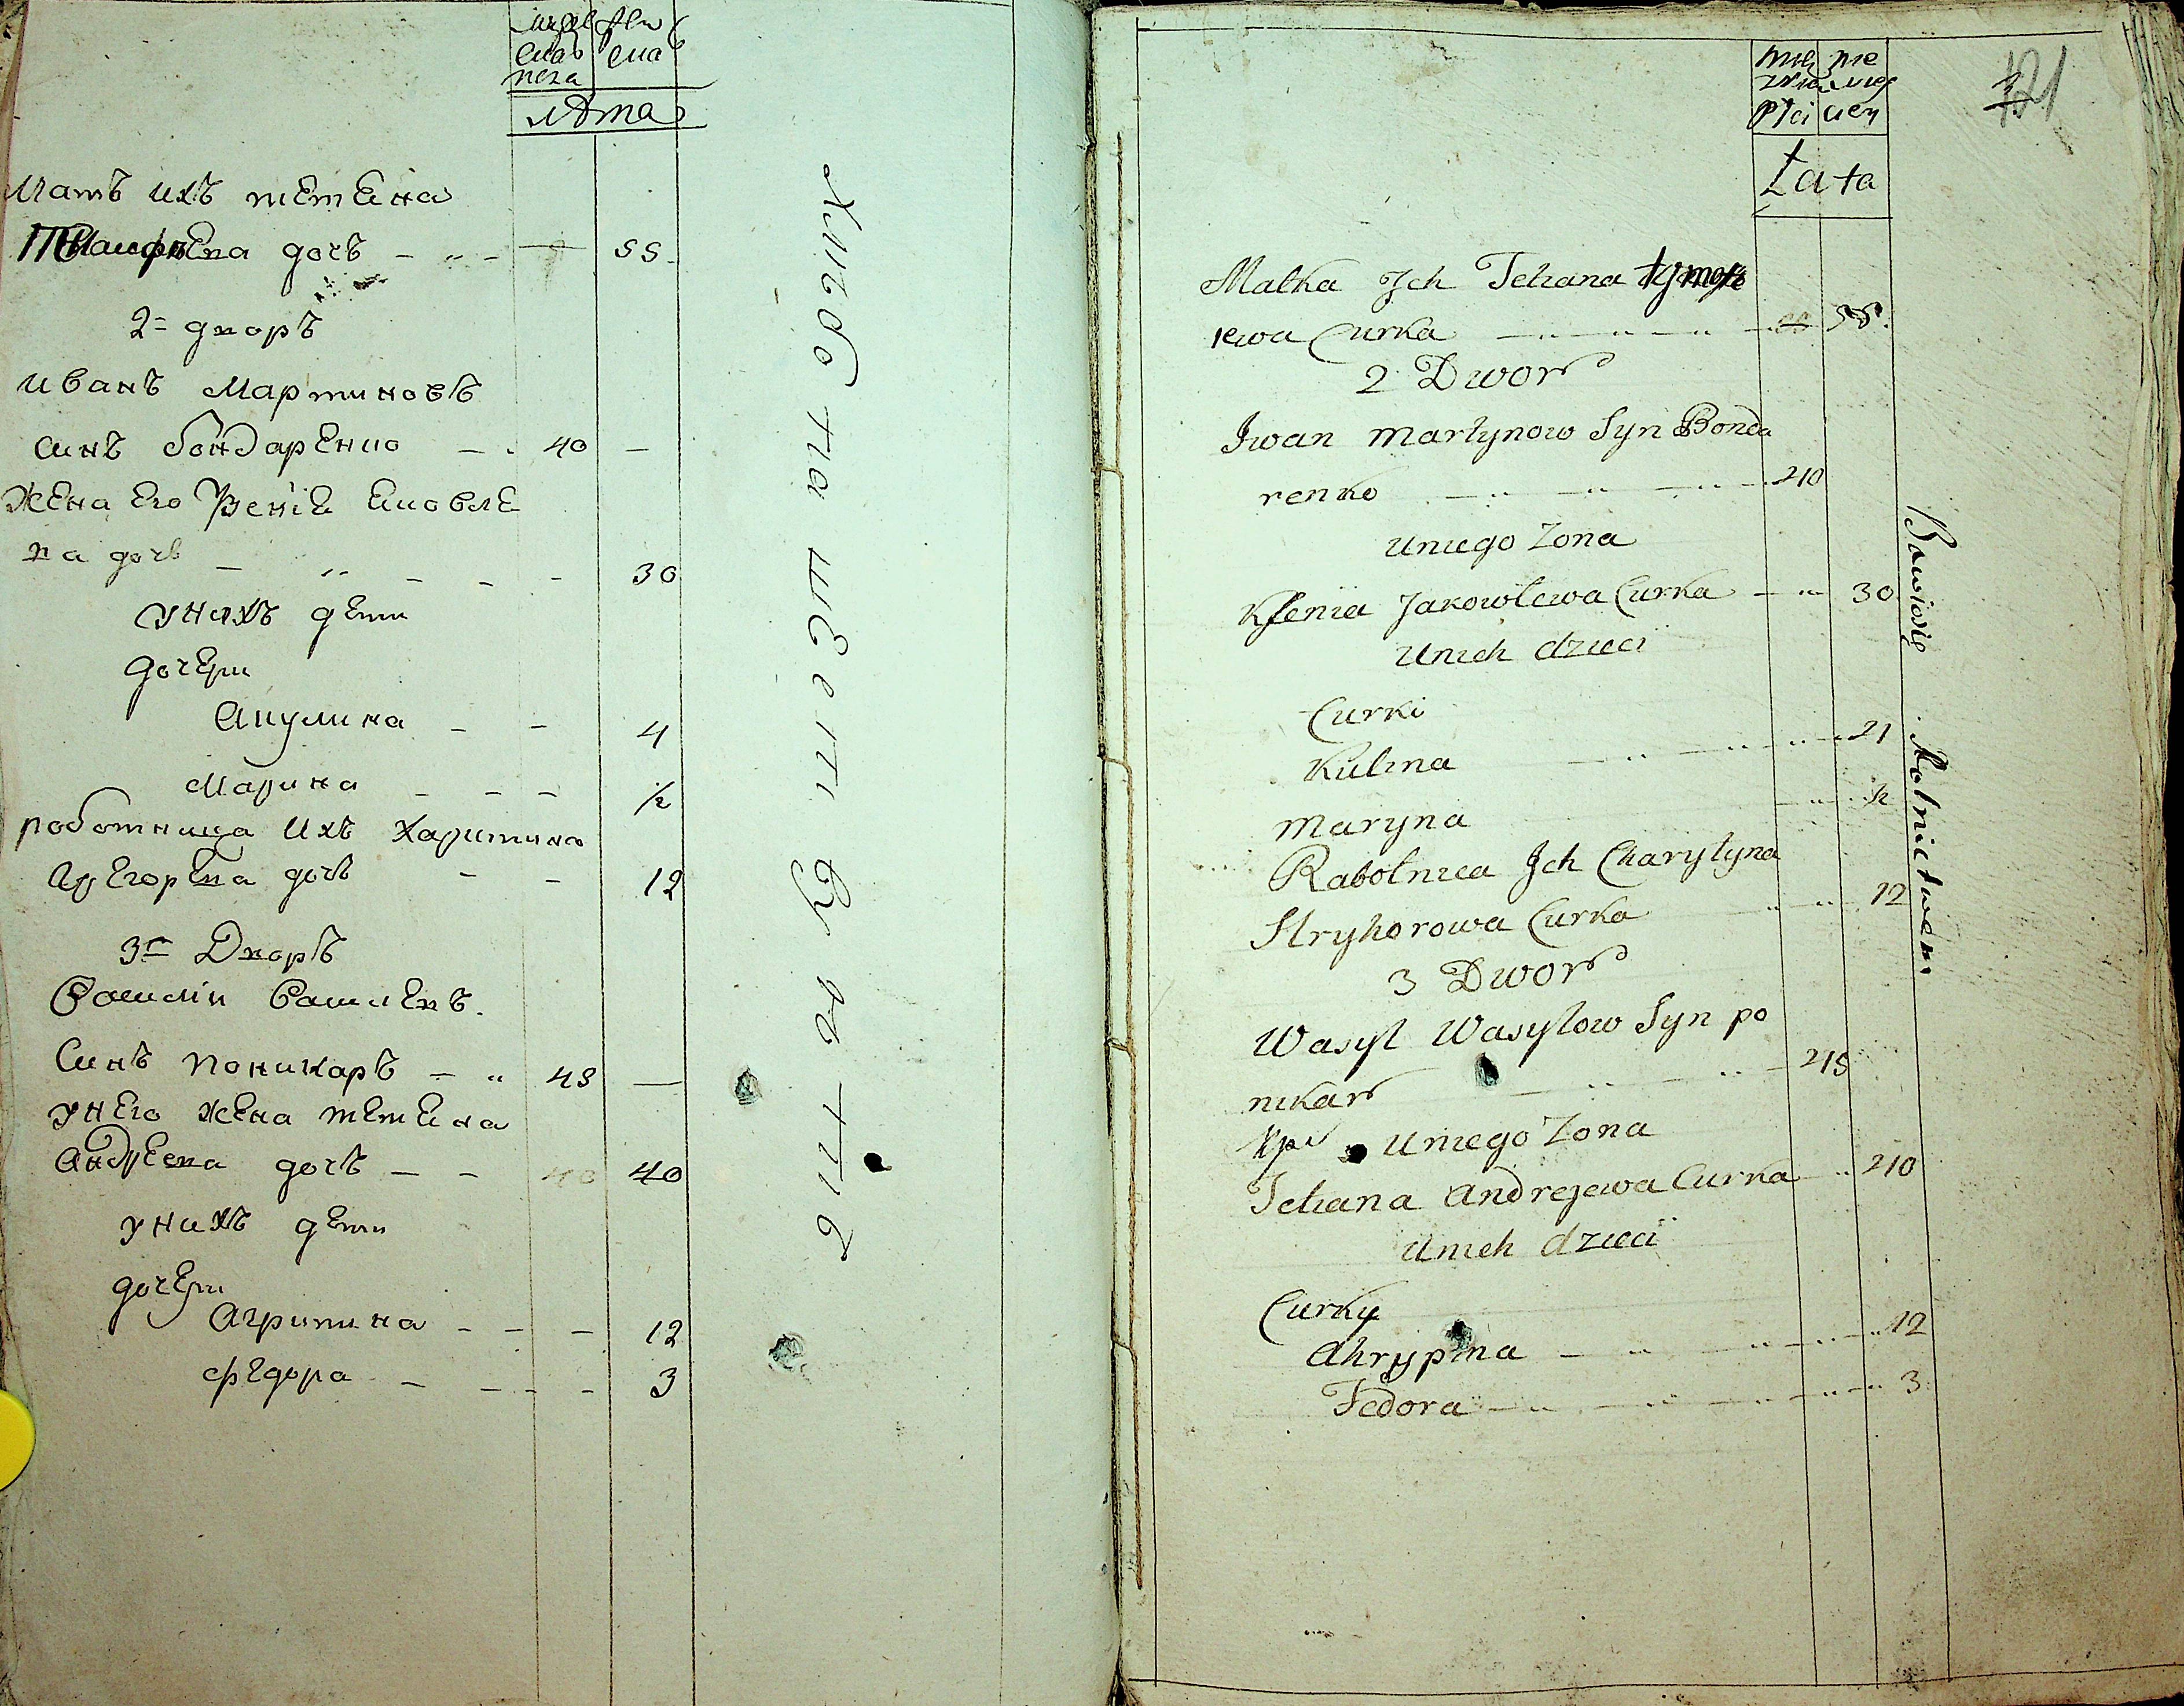 лѣта
Мать ихъ тетеяна
дочь - „ - — 55
2 = дворъ
иванъ Мартиновъ
синъ бондаренко — . 40 —
жена его ѮеніеЕковле
ва дочь — „ - - - 30
унихъ дети
дочери
Акулина - - 4
Марина - - - ½
роботница ихъ Харитина
Григорева дочь - - 12
3 = Дворъ
Василій Василевъ
Синъ поникаръ - „ 45 —
унего жена тетеяна
Андреева дочь - - 40
унихъ дети
дочери
Агрипина - - - 12
федора - - - - 3
хлѣбопашествуетъ
121
męz nie
zkiey wieś
płci ciey
Lata
Matka Jch Tetiana tymofe
iewa Curka 55
2 Dwor
Jwan Martynow Syn Bonda
renko 40
Uniego Zona
Ksenia Jakowlewa Curka 30
Unich dzieci
Curki
Kulina 4
Maryna ½
Rabotnica Jch Charytyna
Hryhorowa Curka 12
3 Dwor
Wasyl Wasylow Syn po
nikar 45
Uniego Zona
Tetiana Andrejewa Curka 40
Unich dzieci
Curky
Ahrypina 12
Fedora 3
Bawiosię Rolnictwem